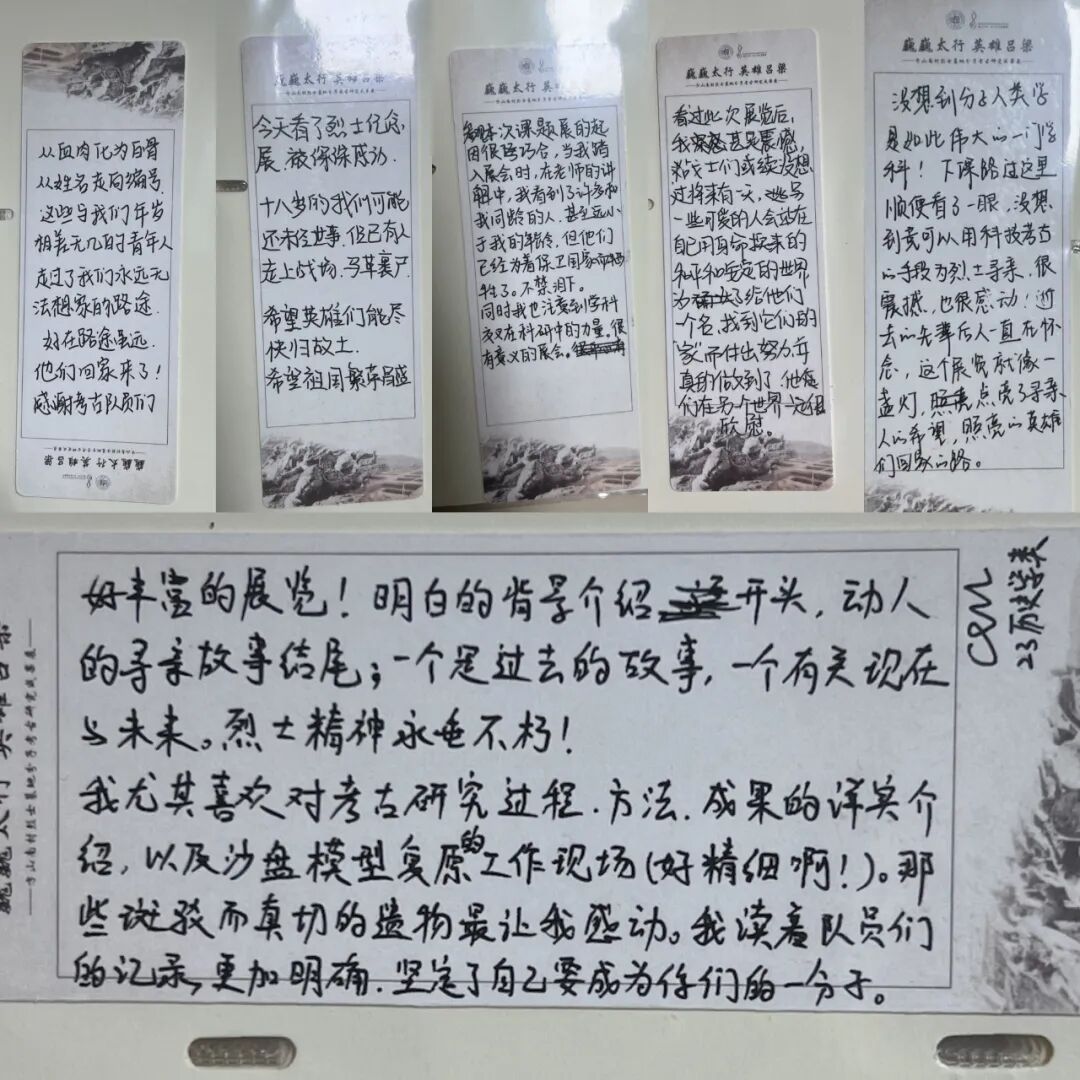 从血肉化为白骨
从姓名走向编号
这些与我们年岁
相差无几的青年人
走过了我们永远无
法想象的路途
好在路途虽远
他们回家来了！
感谢考古队员们
巍巍太行 英雄吕梁
巍巍太行 英雄吕梁
今天看了烈士纪念
展，被深深感动．
十八岁的我们可能
还未经世事，但已有人
走上战场．马革裹尸
希望英雄们能尽
快归故土．
希望祖国繁荣昌盛
巍巍太行 英雄吕梁
本次课题展的起
因很巧合，当我踏
入展会时，在老师的讲
解中，我看到了许多和
我同龄的人，甚至远小
于我的年龄，但他们
已经为着保卫国家而牺
牲了。不禁泪下。
同时我也注意到学科
交叉在科研中的力量。很
有意义的展会。
巍巍太行 英雄吕梁
看过此次展览后，
我深感甚是震憾，
战士们或续没想
过将来有一天，
一些可爱的人会站在
自己用身命换来的
和平和安定的世界
为了给他们
一个名，找到它们的
“家”而付出努力并
真的做到了．他
们在另一个世界一定很
欣慰。
巍巍太行 英雄吕梁
没想到分子人类学
是如此伟大的一门学
科！下课路过这里
顺便看了一眼，没想
到竟可以用科技考古
的手段为烈士寻亲，很
震撼，也很感动！逝
去的先辈后人一直在怀
念，这个展览就像一
盏灯，点亮了寻亲
人的希望，照亮的英雄
们回家的路。
好丰富的展览！明白的背景介绍开头，动人
的寻亲故事结尾；一个是过去的故事，一个有关现在
与未来。烈士精神永垂不朽！
我尤其喜欢对考古研究过程．方法．成果的详实介
绍，以及沙盘模型复原的工作现场(好精细啊！)。那
些斑驳而真切的遗物最让我感动。我读着队员们
的记录，更加明确．坚定了自己要成为你们的一分子。
23历史学类